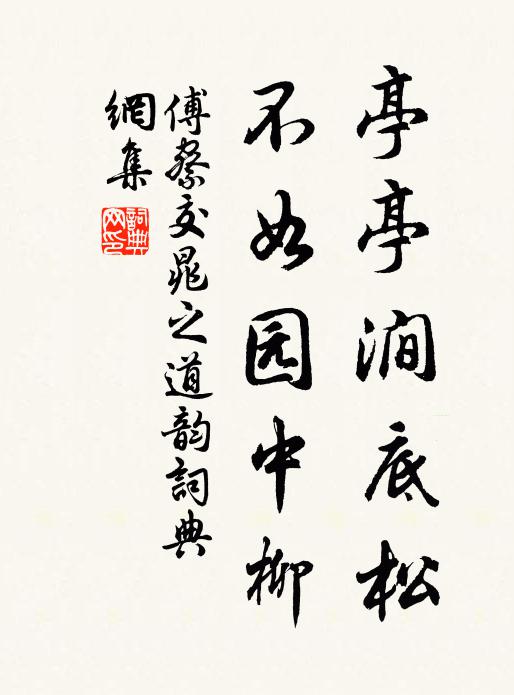 亭亭澗底松
不如园中柳
傅察交晁之道韵詞典
網集
詞典網印